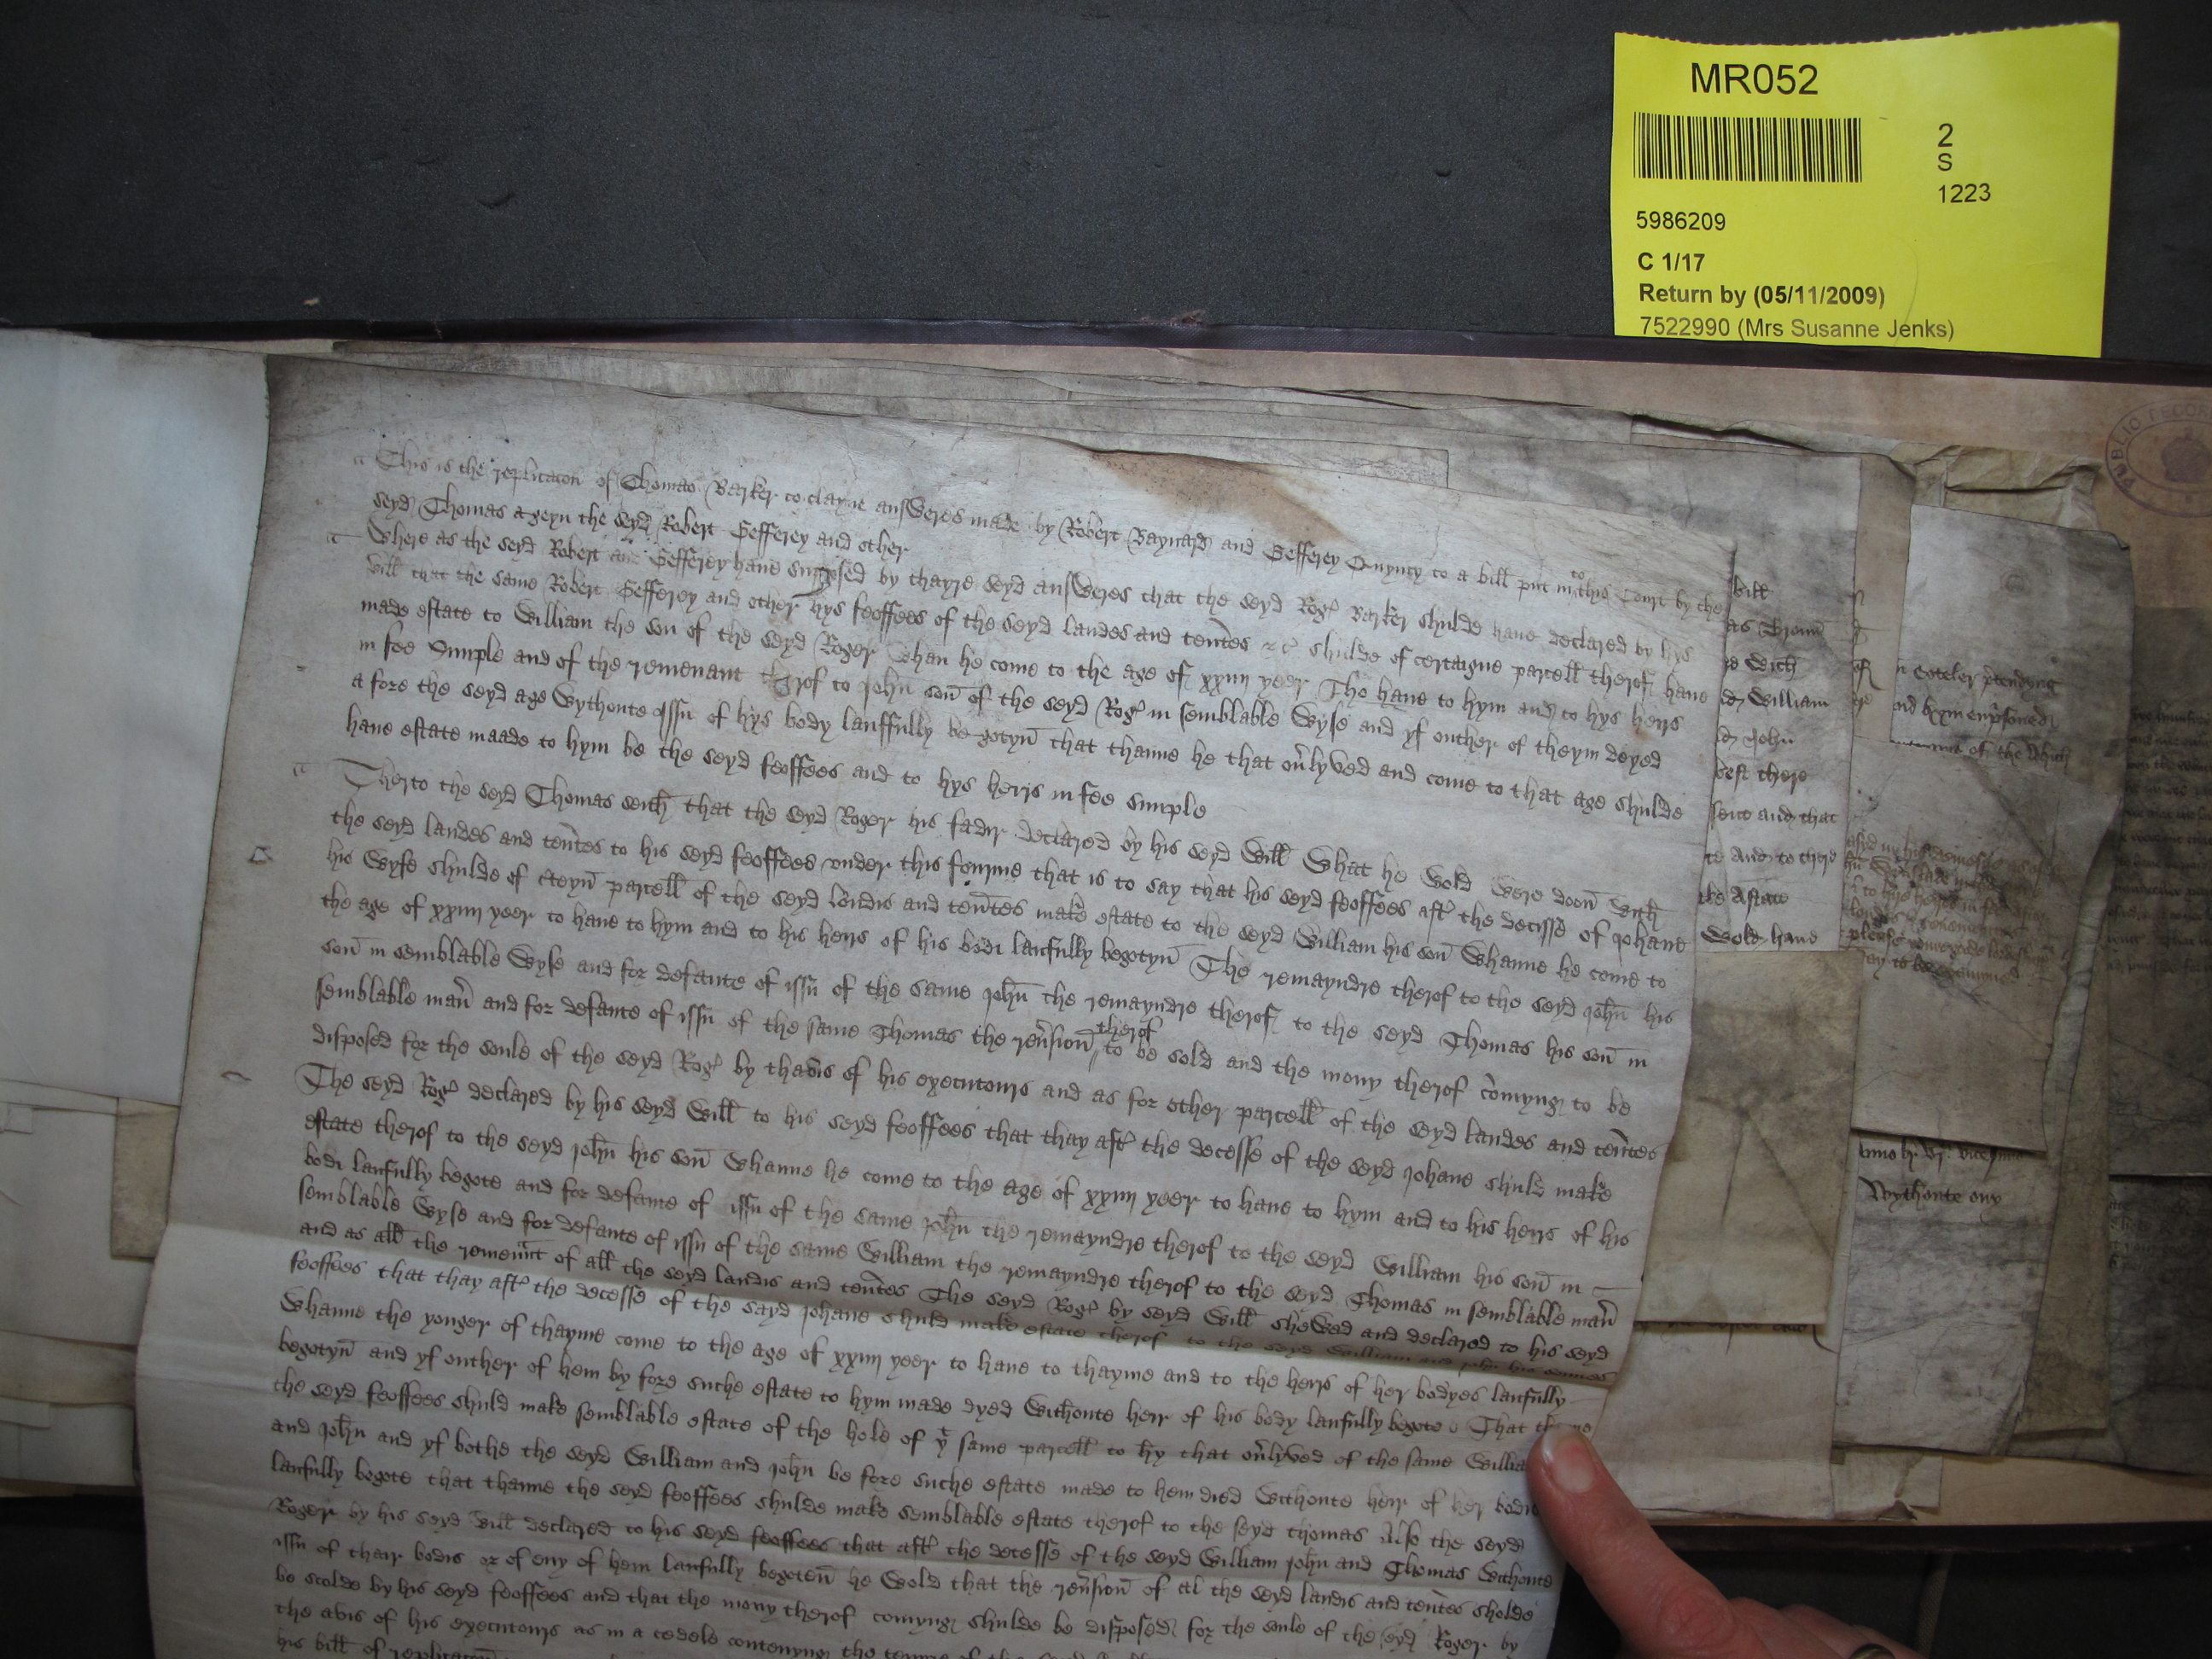 MR052
2
S
1223
5986209
C 1/17
Return by (05/11/2009)
7522990 (Mrs Susanne Jenks)
This is the replicacon of Thomas Barker to answeres made by Robert Baynard and Gefferey Qwyncy to a bill put in to this Court by the
seyd Thomas ageyn the seyd Robert Gefferey and other
Where as the seyd Robert and Gefferey haue supposed by thayre seyd answeres that the seyd Rog Barker shulde haue declared by hys
Will that the same Robert Gefferey and other hys feoffees of the seyd landes and tentes &c shulde of certaigne parcell therof haue
made estate to William the son of the seyd Roger whan he come to the age of xxiiij yeer The haue to hym and to hys heirs
in fee Simple and of the remenant therof to John son of the seyd Rog in semblable wyse and yf outher of theym deyed
a fore the seyd age wythoute Issu of hys body laufully be gotyn that thanne he that ouerlyved and come to that age shulde
haue estate maade to hym be the seyd feoffees and to hys heirs in fee simple
Therto the seyd Thomas seith that the seyd Roger his fadir declared by his seyd Will What he wold were doon with
the seyd landes and tentes to his seyd feoffees under this fourme that is to say that his seyd feoffees aft the decesse of Johane
his wyfe shulde of cteyn parcell of the seyd londis and tentes make estate to the seyd William his son whanne he come to
the age of xxiiij yeer to haue to hym and to his heirs of his bodi laufully begotyn The remayndre therof to the seyd John his
son in semblable wyse and for defaute of issu of the same John the remayndre therof to the seyd Thomas his son in
semblable man and for defaute of issu of the same Thomas the reusion therof to be sold and the mony therof comyng to be
disposed for the soule of the seyd Rog by thavis of his executours and as for other parcell of the seyd landes and tentes
The seyd Rog declared by his seyd Will to his seyd feoffees that thay aft the decesse of the seyd Johane shuld make
estate therof to the seyd John his son whanne he come to the age of xxiiij yeer to haue to hym and to his heirs of his
bodi laufully begote and for defaute of issu of the same John the remayndre therof to the seyd William his son in
semblable wyse and for defaute of issu of the same William the remayndre therof to the seyd Thomas in semblable man
and as all the remenant of all the seyd landis and tentes The seyd Rog by seyd Will shewed and declared to his seyd
feoffees that thay aft the decesse of the sayd Johane shuld make estate therof to the seyd William and John his sonnes
Whanne the yonger of thayme come to the age of xxiiij yeer to haue to thayme and to the heirs of her bodyes laufully
begotyn and yf outher of hem by fore suche estate to hym made dyed withoute heir of his body laufully begote That
the seyd feoffees shuld make semblable estate of the hole of yt same parcell to hy that ouerlyved of the same William
and John and yf bothe the seyd William and John be fore suche estate made to hem died withoute heir of her bodi
laufully begote that thanne the seyd feoffees shulde make semblable estate therof to the seyd thomas Also the seyd
Roger by his seyd Will declared to his seyd feoffees that aft the decesse of the seyd William John and Thomas withoute
issu of thair bodis or of eny of hem laufully begoten he wold that the reusion of al the seyd landis and tentes sholde
be scolde by his seyd feoffees and that the mony therof comyng shulde be disposed for the soule of the seyd Roger by
the avis of his executours as in a cedele contenyng the tenure of the
his bill of replicacon
bill
William
John
best there
sent and that
te And to there
the Astate
Wold haue
Wythoute eny